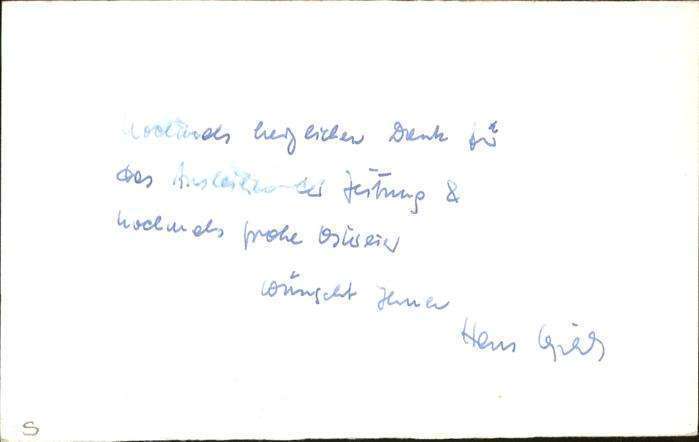 Nochmals herzlichen Dank für
das Ausleihen der Zeitung &
nochmals frohe Ostereier
wünscht Ihnen
Hans
S